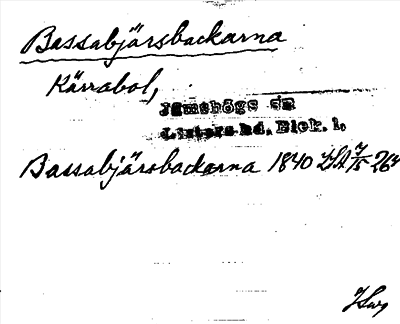 Bassabjärsbackarna
Kärrabol,
Jämshögs sn
Listers hd, Blek. l.
Bassabjärsbackarna 1840 LSA